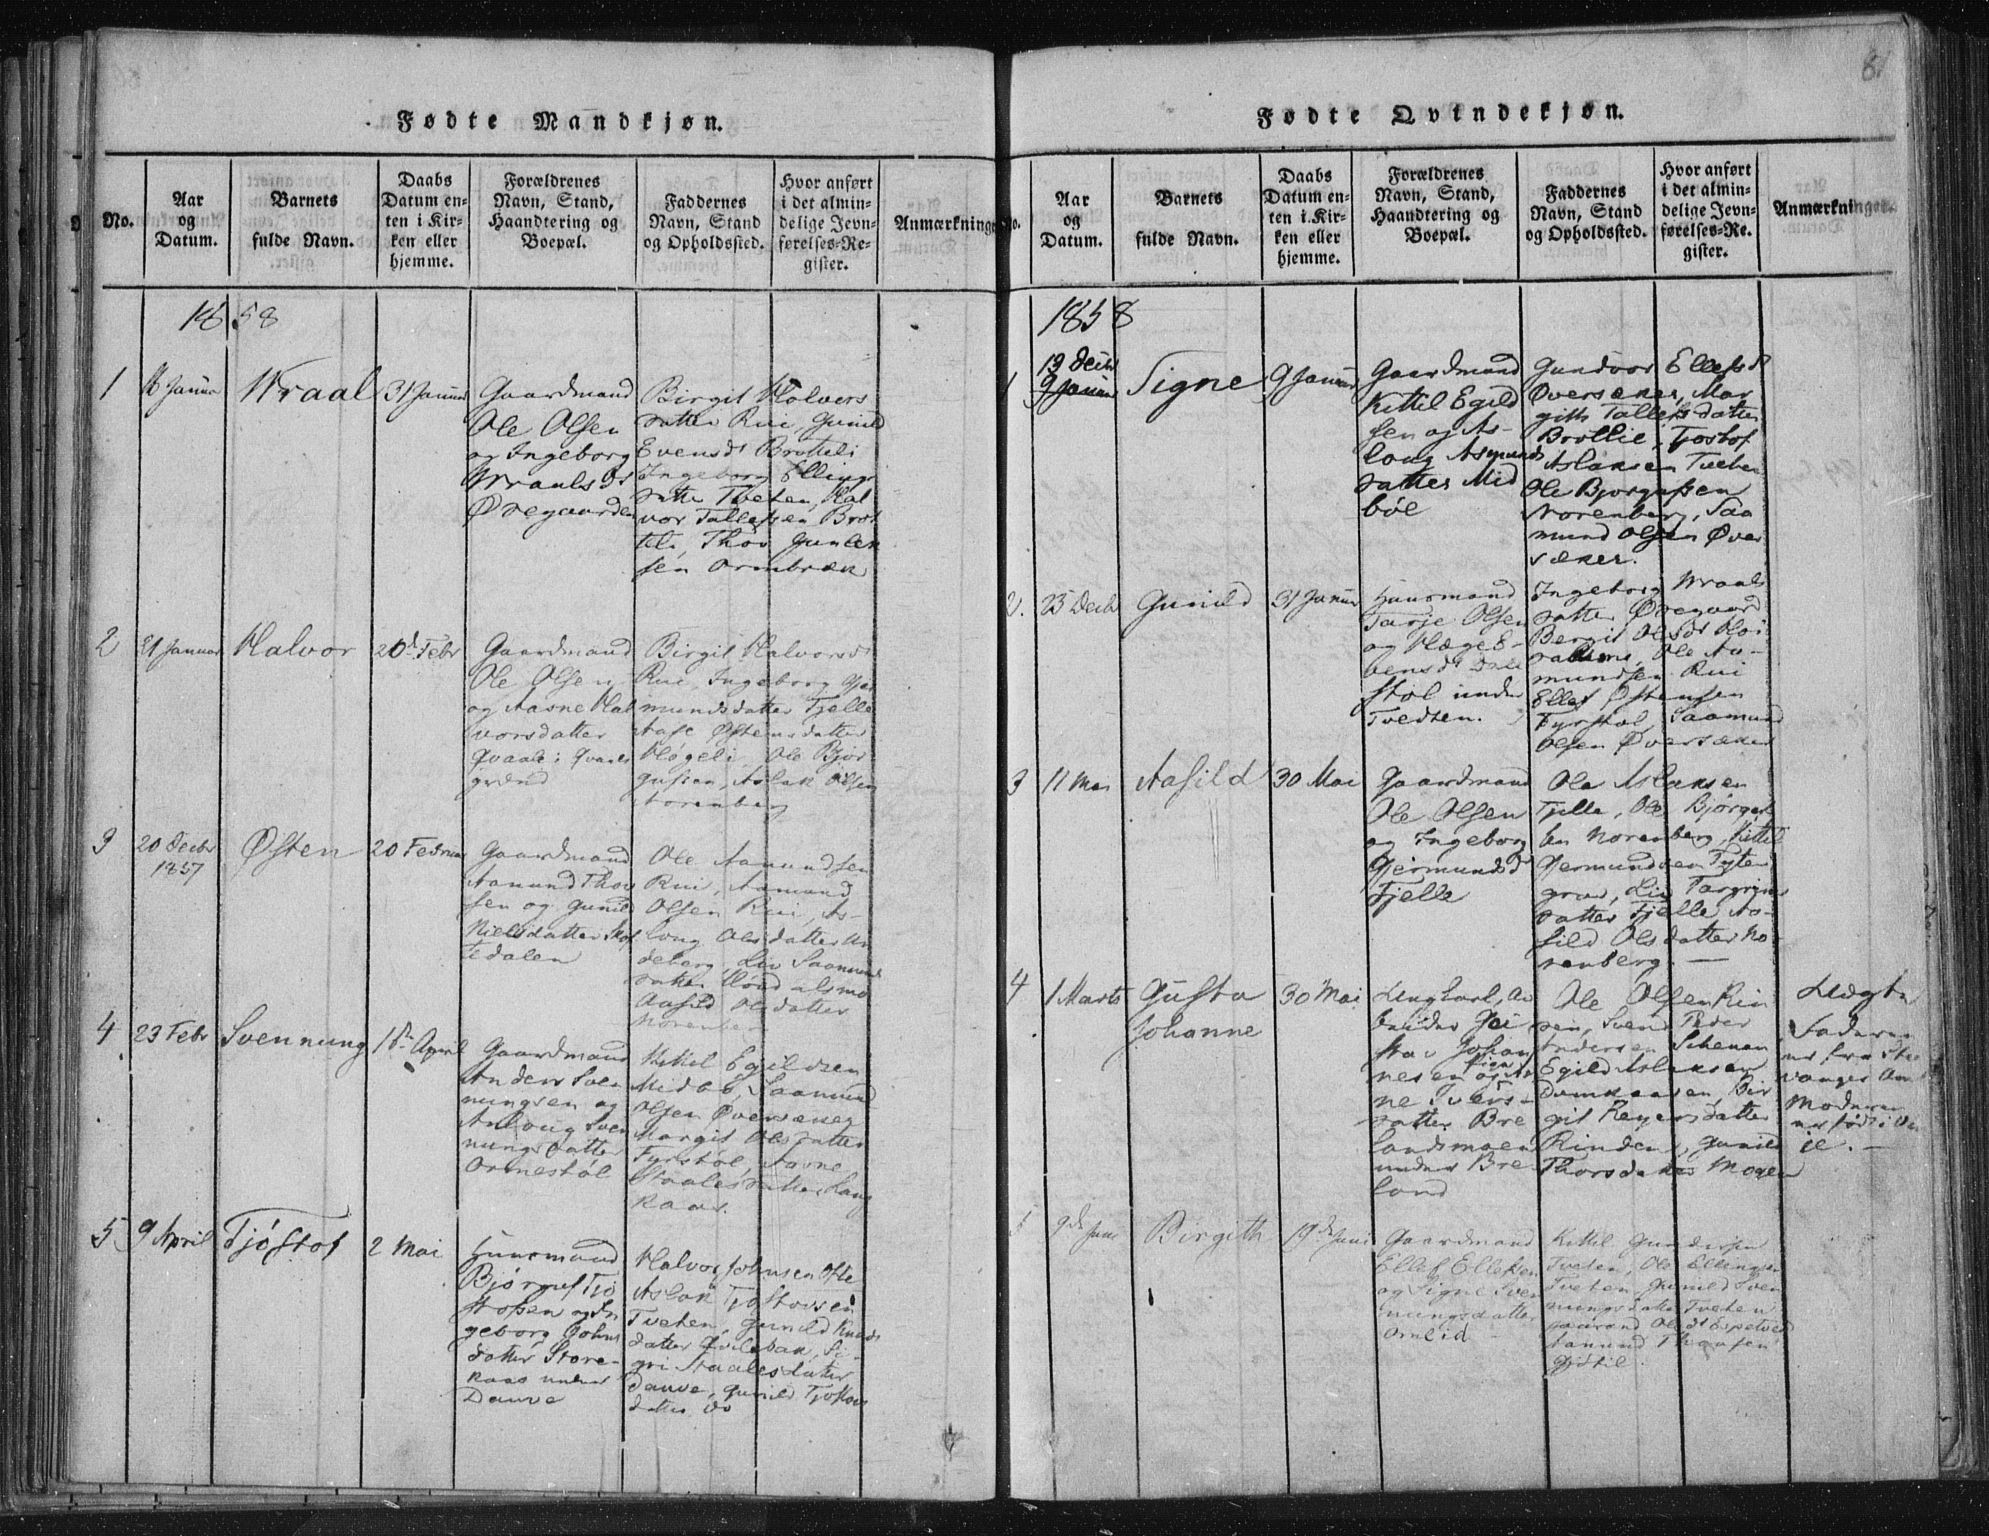 81
Fødte Mandkjøn.
No.
Aar
og
Datum.
Barnets
fulde Navn.
Daabs
Datum en-
ten i Kir-
ken eller
hjemme.
Forældrenes
Navn, Stand,
Haandtering og
Boepæl.
Faddernes
Navn, Stand
og Opholdssted.
Hvor anført
i det almin-
delige Jevn-
førelses-Re-
gister.
Anmærkninger
1858
1
16 Januar
Wraal
31 Januar
Gaardmand
Ole Olsen
og Ingeborg
Wraalsdr
Øvegaarden
Birgit Halvors
datter Rui, Gunild
Evensdr Brotteli
Ingeborg Ellings
datter Tveten, Hal
vor Tallefsen Brot
teli, Thov Gunlek
sen Ormbræk
2
21 Januar
Halvor
20d Febr
Gaardmand
Ole Olsen
og Aasne Hal
vorsdatter
Qvaale i
grænd
Birgit Halvorsdr
Rui, Ingeborg Gjer
mundsdatter Fjelle
Aase Østensdatter
Høgeli, Ole Bjør
gufsen, Aslak Olsen
Norenberg
3
20 Decbr
1857
Østen
20 Februar
Gaardmand
Aanund Thov
sen og Gunild
Nielsdatter
tedalen
Ole Aamundsen
Rui, Aamund
Olsen Rui, As-
loug Olsdatter
deberg, Liv Saamunds
datter
Aasild Olsdatter
Norenberg
4
23 Febr
Svennung
18de April
Gaardmand
Anders Sven
nungsen og
Anloug Sven
nungsdatter
Ormestøl
Kittil Egildsen
Midbø, Saamund
Olsen Øversæker
Margit Olsdatter
Fyrstøl, Aasne
Staalesdatter Lang
kaas.
5
9 April
Tjøstof
2 Mai
Huusmand
Bjørguf Tjø
stofsen og In
geborg Johns
datter Store-
kaas under
Dauve
Halvor Johnsen Ofte
Aslak Tjøstovsen
Tveten, Gunild Knuds
datter Hvilebæk, Si-
gri Staalesdatter
Dauve, Gunild Tjøstovs
datter do
Fødte Qvindekjøn.
No.
Aar
og
Datum.
Barnets
fulde Navn.
Daabs
Datum en-
ten i Kir-
ken eller
hjemme.
Forældrenes
Navn, Stand,
Haandtering og
Boepæl.
Faddernes
Navn, Stand
og Opholdssted.
Hvor anført
i det almin-
delige Jevn-
førelses-Re-
gister.
Anmærkninger.
1858
1
13 Decbr
9 Januar
Signe
9 Januar
Gaardmand
Kittil Egild
sen og As-
loug Asmunds
datter Mid
böe
Gundvor Ellefsdr
Øversæker, Mar
gith Tallefsdatter
Brottlie, Tjostof
Aslaksen Tveten
Ole Bjorgufsen
Norenberg, Saa
mund Olsen Øver
sæker.
2.
23 Decbr
Gunild
31 Januar
Huusmand
Tarje Olsen
og Hæge E-
vensdr Dale
støl under
Tvedten.
Ingeborg Wraals
datter Øvegaard
Bergit Olsdr Høi
dalsmo, Ole Aa-
mundsen Rui
Ellef Østensen
Fyrstøl, Saamund
Olsen Øversæker
3
11 Mai
Aasild
30 Mai
Gaardmand
Ole Olsen
og Ingeborg
Gjermundsdr
Fjelle
Ole Aslaksen
Fjelle, Ole Bjørguf
sen Norenberg, Kittil
Gjermundsen Tyte
grav, Liv Targrims
datter Fjelle, Aa-
sild Olsdatter No-
renberg. —
4
1 Marts
Gusta
Johanne
30 Mai
Ungkarl, Ar
beider Gu
stav Johan
nesen og
ne Ivers-
datter Bre
landsmoen
under Bre
land
Ole Olsen Rin
den, Svend Peder
Andersen
Egild Aslaksen
Bir
git Reyersdatter
Rinden, Gunild
Thorsdatter Mogen
Uægte
Faderen
er fra Sta
vanger Amt
Moderen
er født i
ie. —
5
9de Juni
Birgith
19de Juni
Gaardmand
Ellef Ellefsen
og Signe Sven
nungsdatter
Omlid
Kittil Gundersen
Tveten, Ole Ellingsen
Tveten Gunild Sven
nungsdatter Tveten
Olsdr Espetvedt
Aanund Thovsen